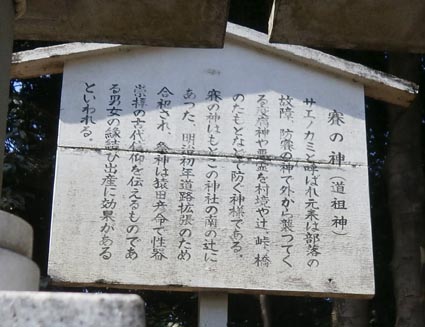 賽の神(道祖神)
サエノカミと呼ばれ元来は部落の
故障、防塞の神で外から襲つてく
る疫病神や悪霊を村境や辻、峠、橋
のたもとなどで防ぐ神様である。
賽の神はもとこの神社の南の辻に
あった、明治初年道路拡張のため
合祀され、祭神は猿田彦命で性器
崇拝の古代信仰を伝えるものであ
る男女の縁結び出産に効果がある
といわれる。